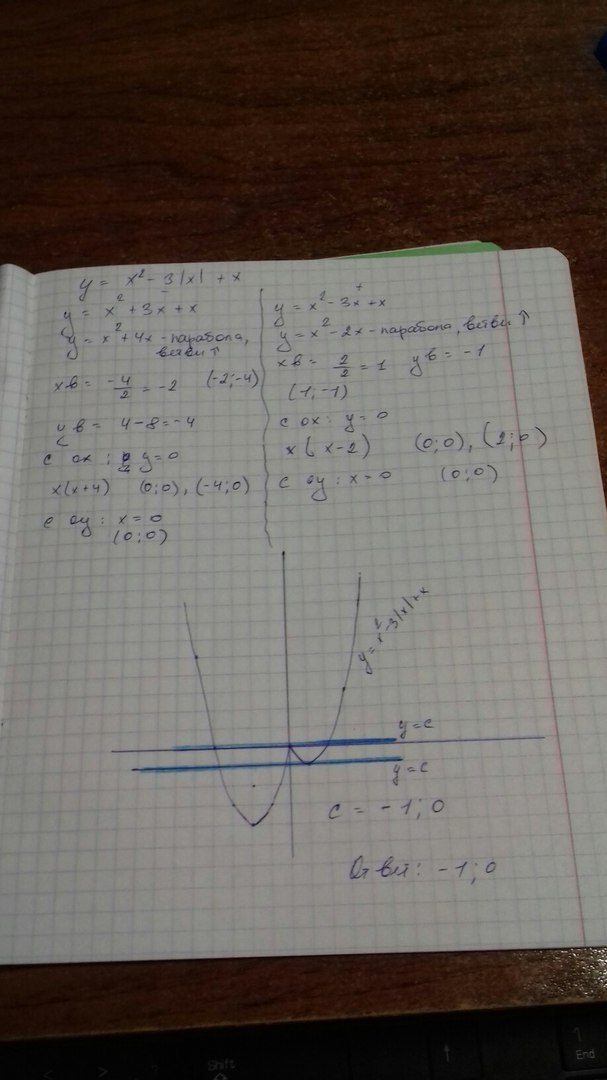 y = x² - 3|x| + x
y = x² + 3x + x
y = x² + 4x - парабола,
ветви ↑
xв = -4/2 = -2 (-2; -4)
yв = 4 - 8 = -4
с ox: y = 0
x(x+4) (0; 0), (-4; 0)
с oy: x = 0
(0; 0)
+
y = x² - 3x + x
y = x² - 2x - парабола, ветви ↑
xв = 2/2 = 1 yв = -1
(1; -1)
с ox: y = 0
x(x-2) (0; 0), (2; 0)
с oy: x = 0 (0; 0)
y = x² - 3|x| + x
y = c
y = c
c = -1; 0
Ответ: -1; 0
Shift
1
End